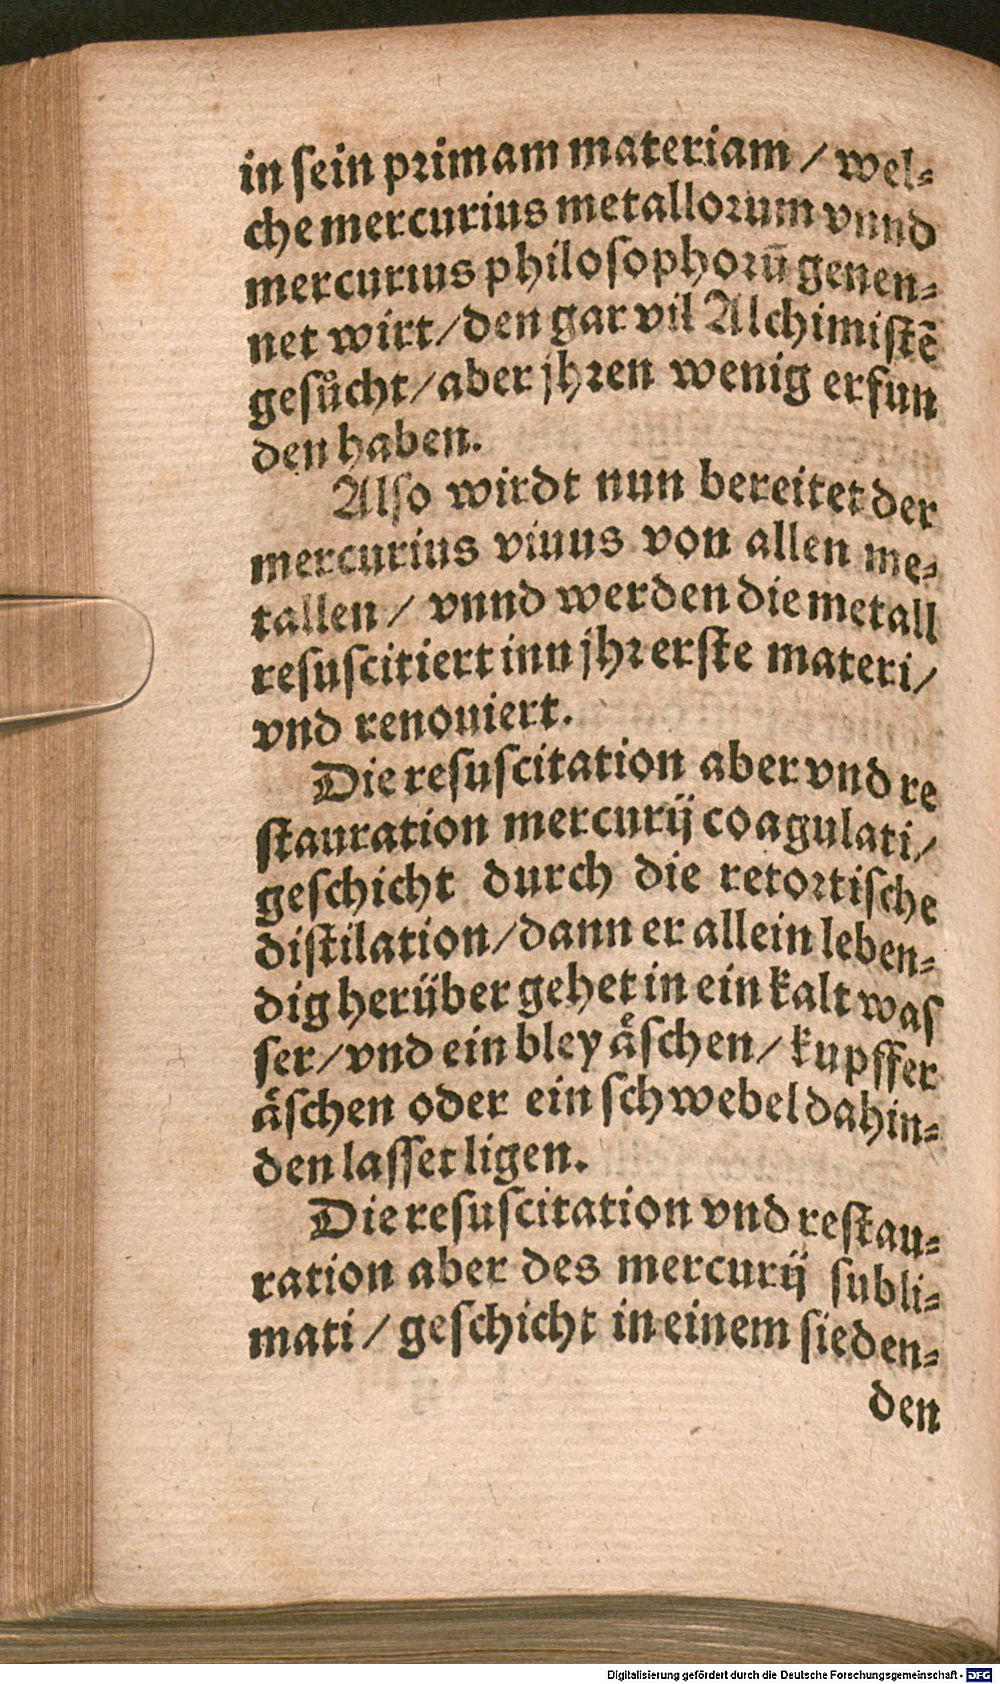 in sein primam materiam / wel-
che mercurius metallorum vnnd
mercurius philosophorū genen-
net wirt / den gar vil Alchimistē
gesůcht / aber jhren wenig erfun
den haben.
Also wirdt nun bereitet der
mercurius viuus von allen me-
tallen / vnnd werden die metall
resuscitiert inn jhr erste materi /
vnd renouiert.
Die resuscitation aber vnd re
stauration mercurij coagulati /
geschicht durch die retortische
distilation / dann er allein leben-
dig herüber gehet in ein kalt was
ser / vnd ein bley åschen / kupffer
åschen oder ein schwebel dahin-
den lasset ligen.
Die resuscitation vnd restau-
ration aber des mercurij subli-
mati / geschicht in einem sieden-
den
Digitalisierung gefördert durch die Deutsche Forschungsgemeinschaft - DFG